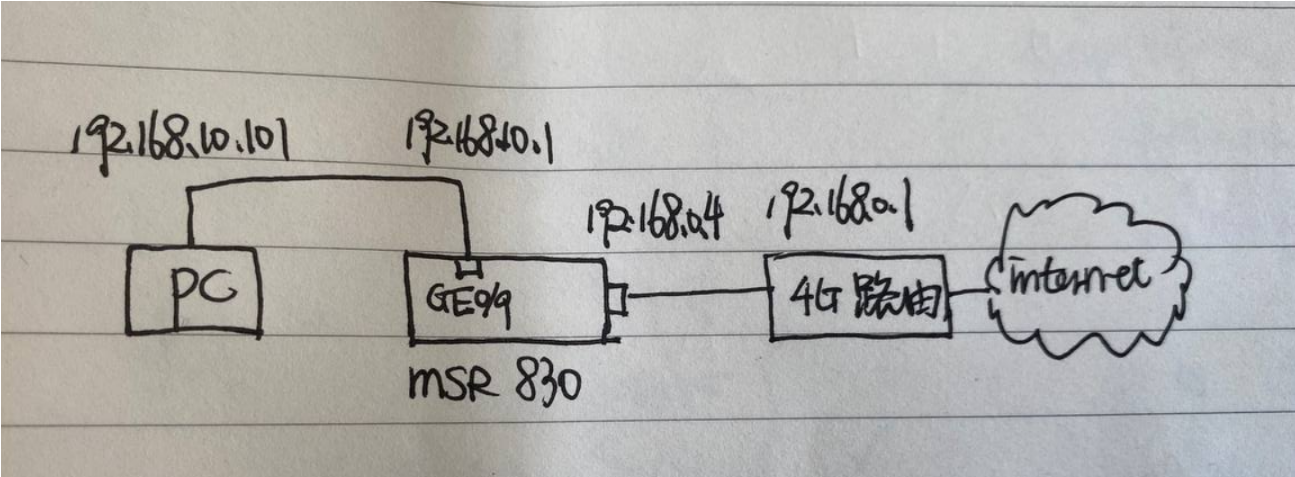 192.168.10.101
192.168.10.1
192.168.0.4
192.168.0.1
PC
GE0/9
4G 路由
internet
MSR 830